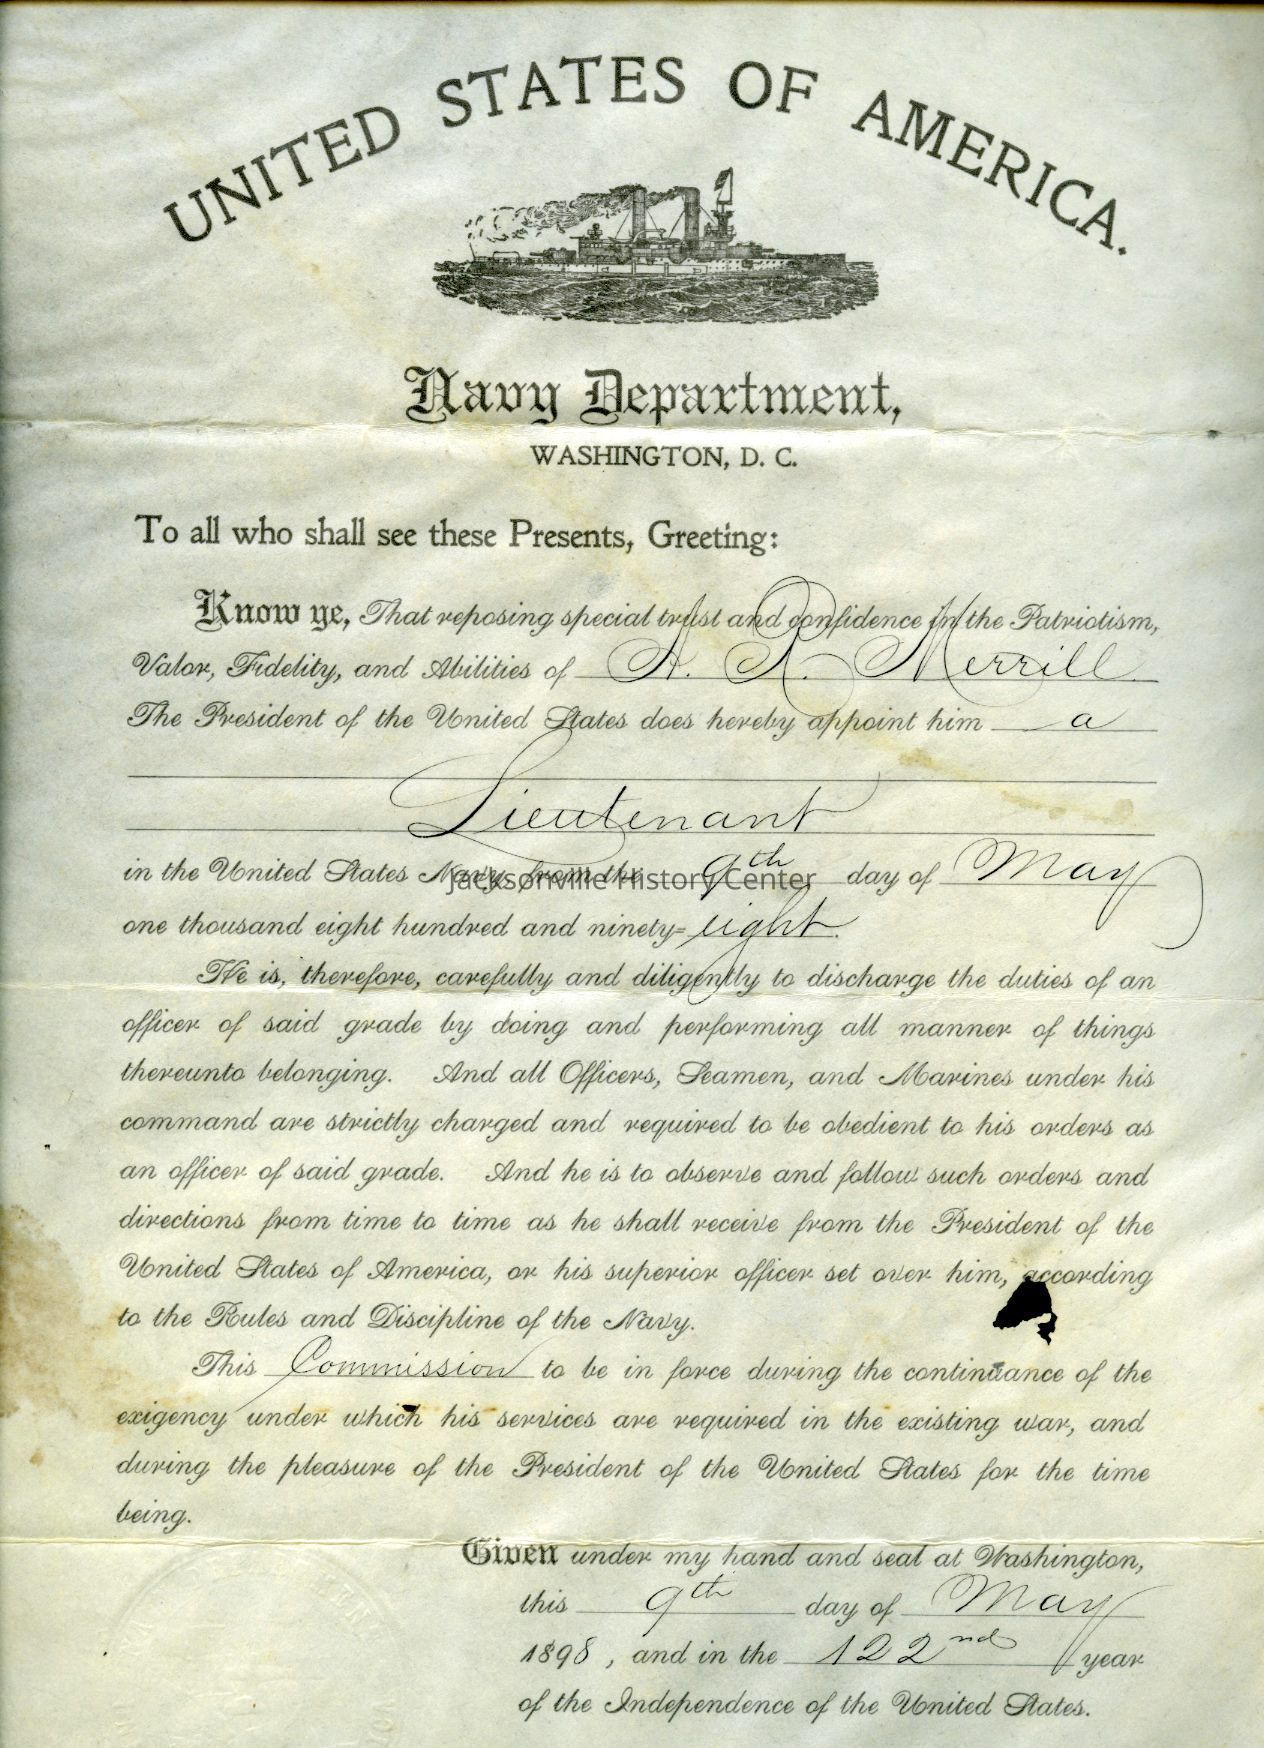 UNITED STATES OF AMERICA.
Navy Department,
WASHINGTON, D. C.
To all who shall see these Presents, Greeting:
Know ye, That reposing special trust and confidence in the Patriotism,
Valor, Fidelity, and Abilities of A. R. Merrill
The President of the United States does hereby appoint him a
Lieutenant
in the United States Navy, from the 9th day of May
Jacksonville History Center
one thousand eight hundred and ninety=eight.
He is, therefore, carefully and diligently to discharge the duties of an
officer of said grade by doing and performing all manner of things
thereunto belonging. And all Officers, Seamen, and Marines under his
command are strictly charged and required to be obedient to his orders as
an officer of said grade. And he is to observe and follow such orders and
directions from time to time as he shall receive from the President of the
United States of America, or his superior officer set over him, according
to the Rules and Discipline of the Navy.
This Commission to be in force during the continuance of the
exigency under which his services are required in the existing war, and
during the pleasure of the President of the United States for the time
being.
Given under my hand and seal at Washington,
this 9th day of May
1898, and in the 122nd year
of the Independence of the United States.